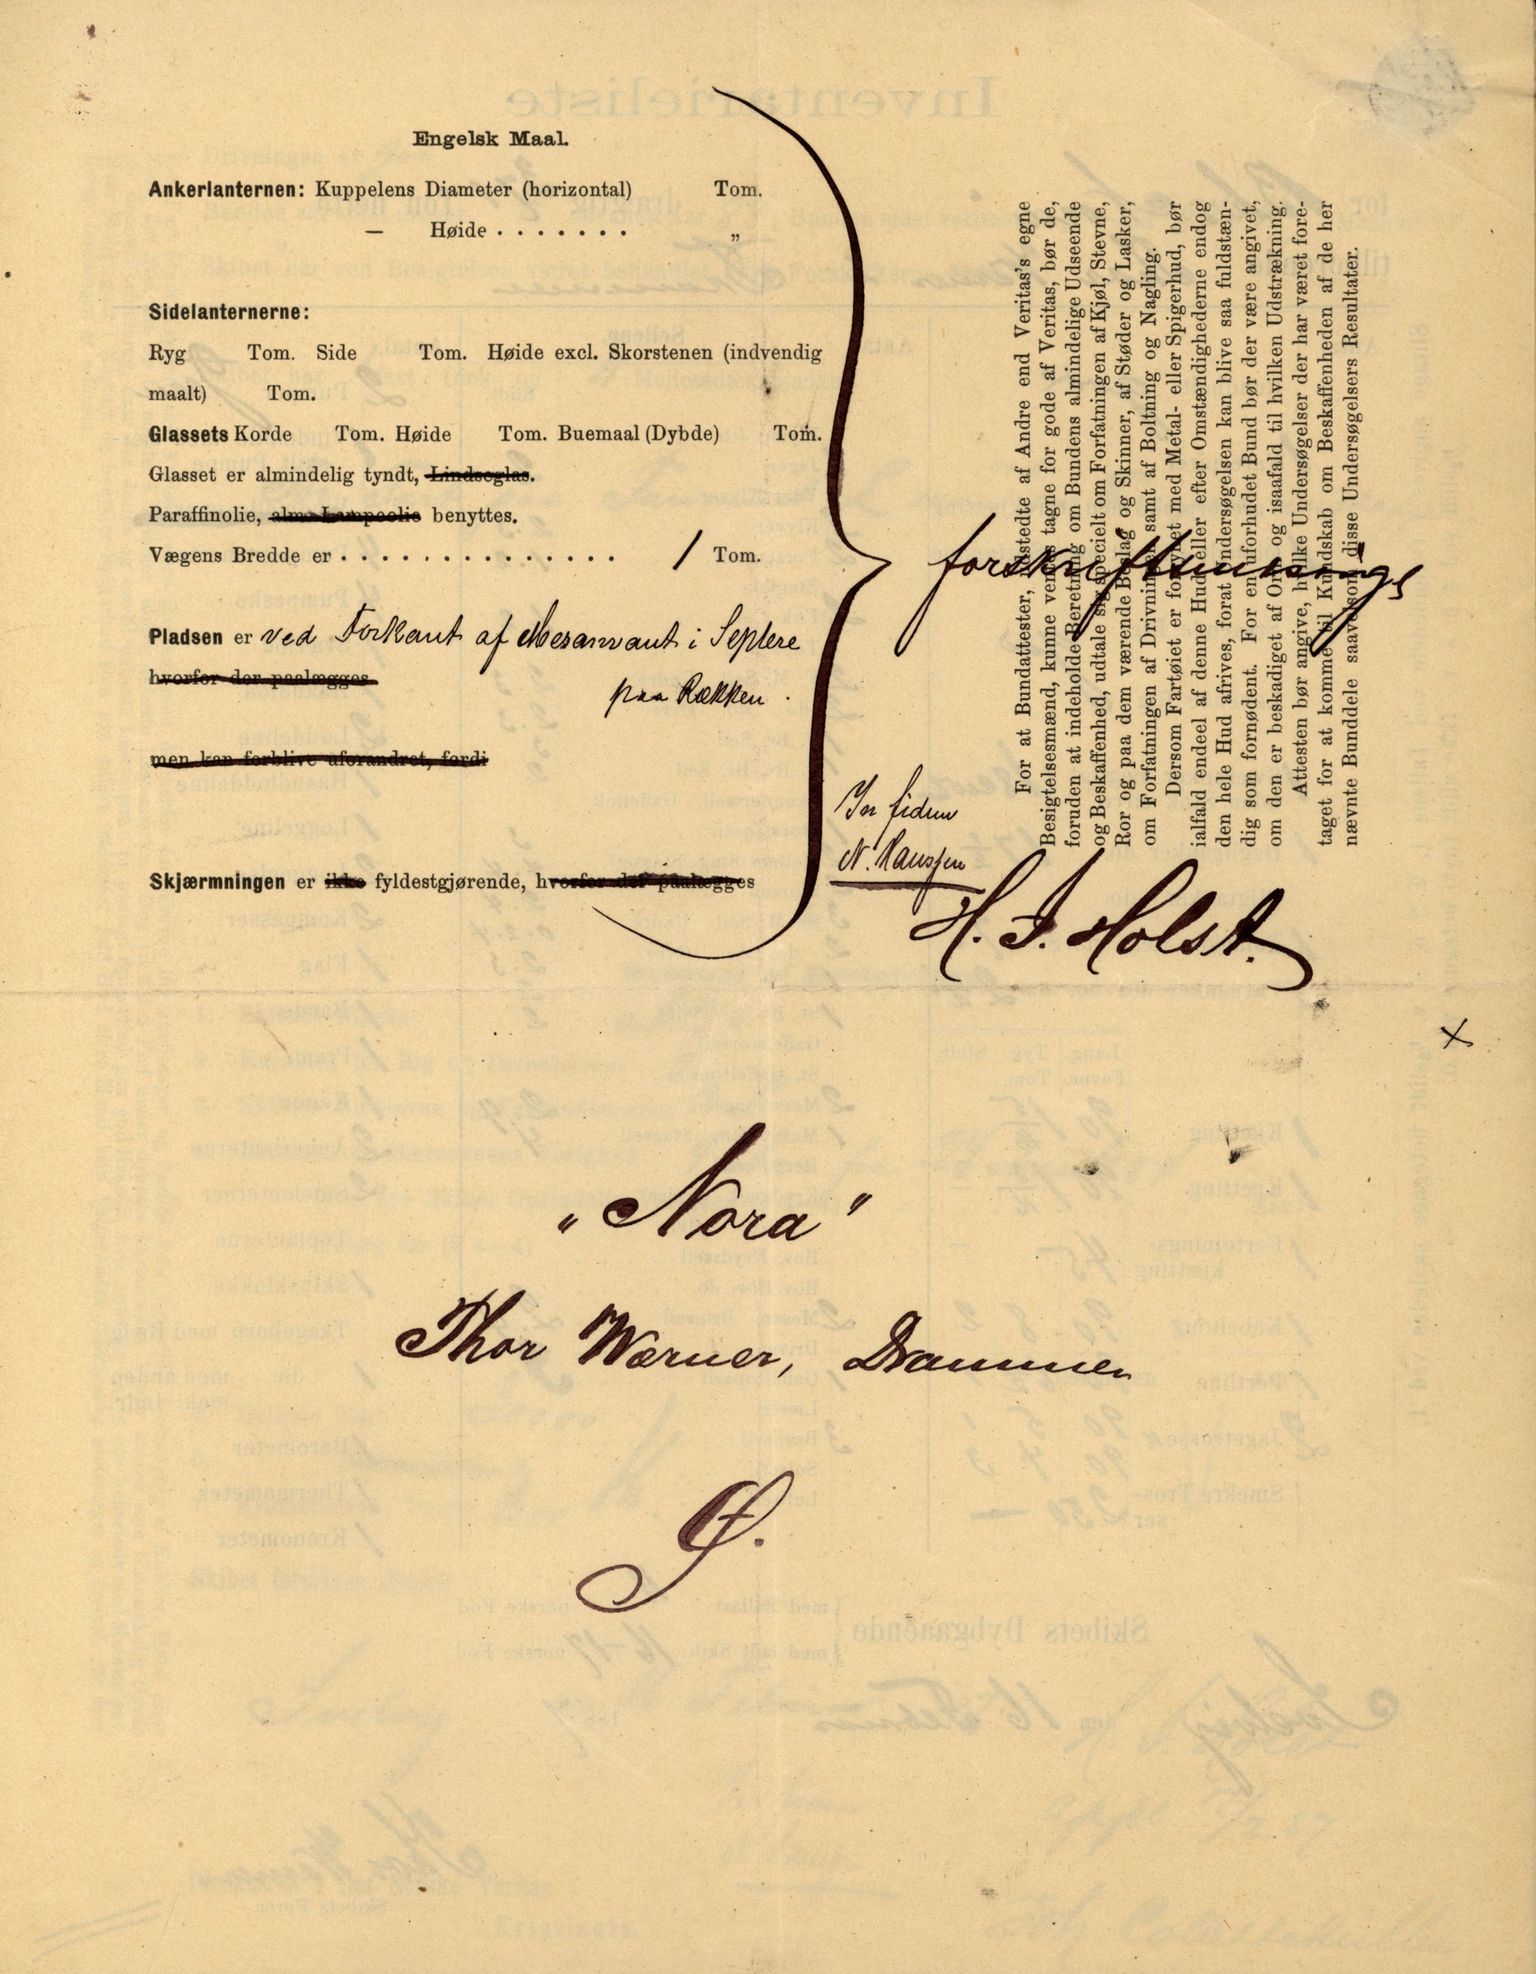 Engelsk Maal.
Ankerlanternen: Kuppelens Diameter (horizontal) Tom.
— Høide . . . . . . . „
Sidelanternerne:
Ryg Tom. Side Tom. Høide excl. Skorstenen (indvendig
maalt) Tom.
Glassets Korde Tom. Høide Tom. Buemaal (Dybde) Tom.
Glasset er almindelig tyndt, Lindseglas.
Paraffinolie, alm. Lampeolie benyttes.
Vægens Bredde er . . . . . . . . . . . . . . 1 Tom.
Pladsen er ved Forkant af Mesanvant i
hvorfor der paalægges
paa Rækken.
men kan forblive uforandret, fordi
Skjærmningen er ikke fyldestgjørende, hvorfor der paalægges
In fidem
N. Hanssen
H. J. Holst.
For at Bundattester, udstedte af Andre end Veritas's egne
Besigtelsesmænd, kunne ventes tagne for gode af Veritas, bør de,
foruden at indeholde Beretning om Bundens almindelige Udseende
og Beskaffenhed, udtale sig specielt om Forfatningen af Kjøl, Stevne,
Ror og paa dem værende Beslag og Skinner, af Støder og Lasker,
om Forfatningen af Drivningen samt af Boltning og Nagling.
Dersom Fartøiet er forsynet med Metal- eller Spigerhud, bør
ialfald endeel af denne Hud eller efter Omstændighederne endog
den hele Hud afrives, forat Undersøgelsen kan blive saa fuldstæn-
dig som fornødent. For en uforhudet Bund bør der være angivet,
om den er beskadiget af Orm og isaafald til hvilken Udstrækning.
Attesten bør angive, hvilke Undersøgelser der har været fore-
taget for at komme til Kundskab om Beskaffenheden af de her
nævnte Bunddele saavelsom disse Undersøgelsers Resultater.
x
„Nora"
Thor Wærner, Drammen